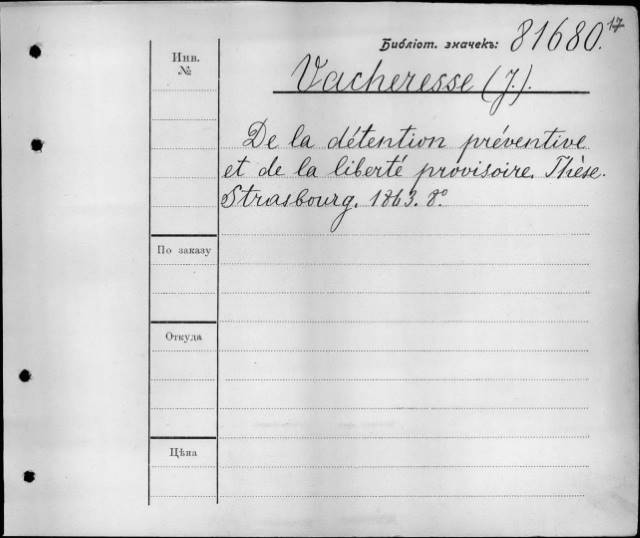 Библіот. значекъ: 81680.17
Инв.
№
Vacheresse (J.).
De la détention préventive
et de la liberté provisoire. Thèse.
Strasbourg. 1863. 8º
По заказу
Откуда
Цѣна